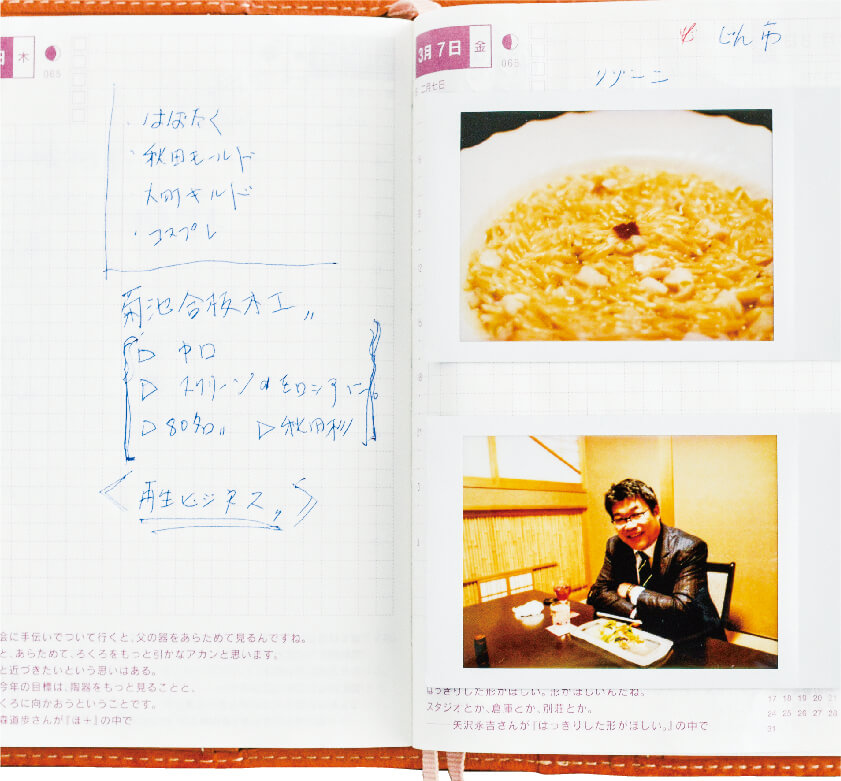 木
065
・はばたく
・秋田モールド
・大町キルド
・コスプレ
菊池合板木工〃
▷ 中口
▷ 80名〃 ▷ 秋田杉
〈再生ビジネス〃〉
会に手伝いでついて行くと、父の器をあらためて見るんですね。
と、あらためて、ろくろをもっと引かなアカンと思います。
と近づきたいという思いはある。
今年の目標は、陶器をもっと見ることと、
くろに向かおうということです。
森道歩さんが『ほ＋』の中で
3月7日 金
065
二月七日
じん市
リゾーニ
はっきりした形がほしい。形がほしいんだね。
スタジオとか、倉庫とか、別荘とか。
――矢沢永吉さんが『はっきりした形がほしい。』の中で
17 18 19 20 21
24 25 26 27 28
31